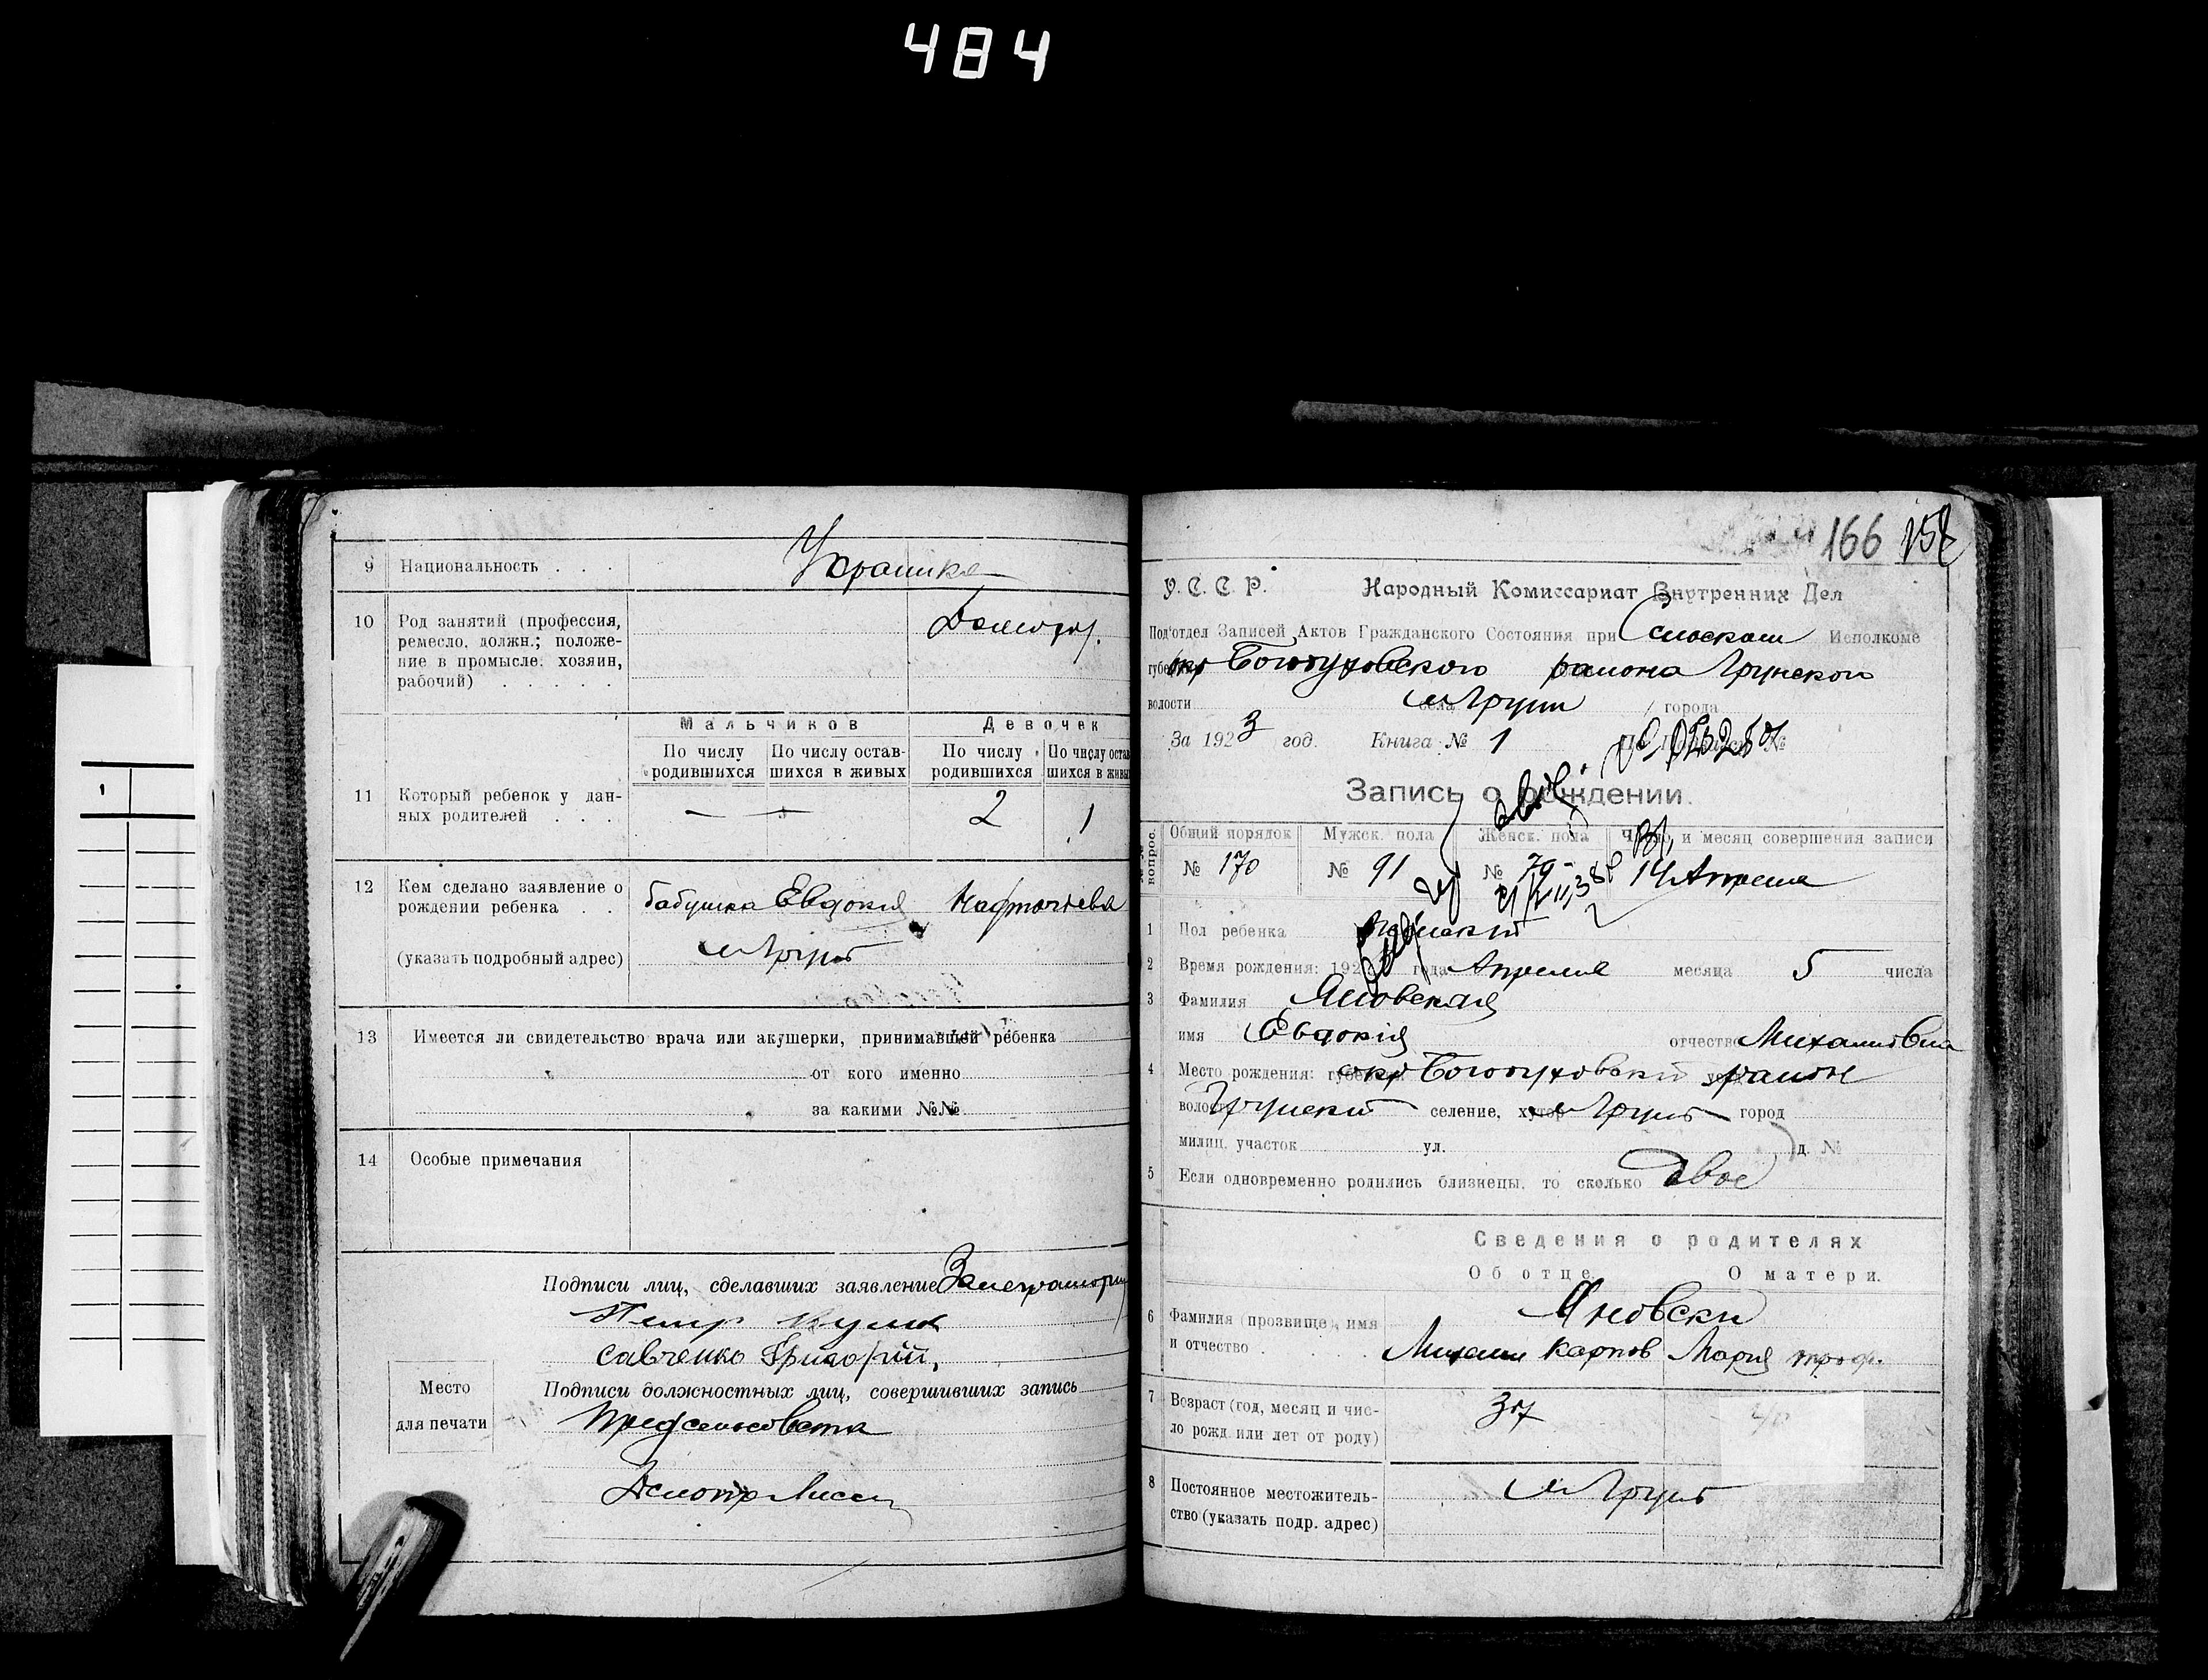 484
9 Национальность . . . Украинка
10 Род занятий (профессия,
ремесло, должн.; положе-
ние в промысле: хозяин,
рабочий) . . . . .
Мальчиков Девочек
По числу родившихся По числу остав-шихся в живых По числу родившихся По числу остав
шихся в живы
11 Который ребенок у дан-
ных родителей . . . — — 2 1
12 Кем сделано заявление о
рождении ребенка . . бабушка Евдокия
(указать подробный адрес) м Грунь
13 Имеется ли свидетельство врача или акушерки, принимавшей ребенка
от кого именно
за какими №№
14 Особые примечания
Подписи лиц, сделавших заявление
Петр
Савченко Григорий,
Место
для печати
Подписи должностных лиц, совершивших запись
Предсельсовета
166 158
У. С. С. Р. Народный Комиссариат Внутренних Дел
Под'отдел Записей Актов Гражданского Состояния при Сельском Исполкоме
окр Богодуховского района Грунского
волости села м Грунь города
За 1923 год. Книга № 1
Запись о рождении.
Общий порядок Мужск. пола Женск. пола Число и месяц совершения записи
№ 170 № 91 № 79 14 Апреля
1 Пол ребенка женский
2 Время рождения: 192 года Апреля месяца 5 числа
3 Фамилия Яновская
имя Евдокия отчество Михайловна
4 Место рождения: окр Богодуховский район
волость Грунский селение, хутор м Грунь город
милиц. участок ул. д. №
5 Если одновременно родились близнецы, то сколько двое
Сведения о родителях
Об отце О матери.
6 Фамилия (прозвище), имя
и отчество . . . . Яновски
Михаил Карпов Мария Троф.
7 Возраст (год, месяц и чис-
ло рожд. или лет от роду) 37
8 Постоянное местожитель-
ство (указать подр. адрес) м Грунь